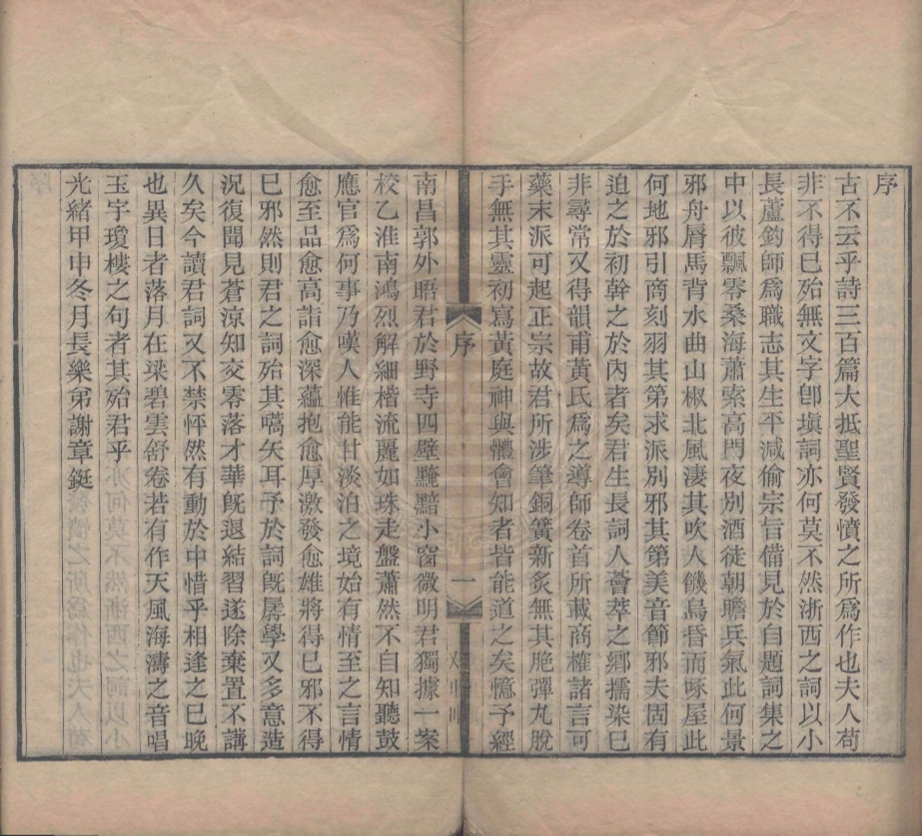 序
古不云乎詩三百篇大抵聖賢發憤之所爲作也夫人苟
非不得巳殆無文字卽塡詞亦何莫不然浙西之詞以小
長蘆釣師爲職志其生平減偷宗旨備見於自題詞集之
中以彼飄零桑海蕭索高門夜別酒徒朝瞻兵氣此何景
邪舟脣馬背水曲山椒北風淒其吹人饑烏昏而啄屋此
何地邪引商刻羽其第求派別邪其第美音節邪夫固有
迫之於初幹之於內者矣君生長詞人薈萃之鄉擩染巳
非尋常又得韻甫黃氏爲之導師卷首所載商榷諸言可
藥末派可起正宗故君所涉筆銅簧新炙無其脆彈丸脫
手無其靈初寫黃庭神與體會知者皆能道之矣憶予經
序
一
南昌郭外晤君於野寺四壁黤黯小窗微明君獨據一案
校乙淮南鴻烈解細楷流麗如珠走盤蕭然不自知聽鼓
應官爲何事乃嘆人惟能甘淡泊之境始有情至之言情
愈至品愈高詣愈深蘊抱愈厚激發愈雄將得巳邪不得
巳邪然則君之詞殆其嚆矢耳予於詞旣孱學又多意造
況復聞見蒼涼知交零落才華旣退結習遂除棄置不講
久矣今讀君詞又不禁怦然有動於中惜乎相逢之巳晚
也異日者落月在梁碧雲舒卷若有作天風海濤之音唱
玉宇瓊樓之句者其殆君乎
光緒甲申冬月長樂弟謝章鋌